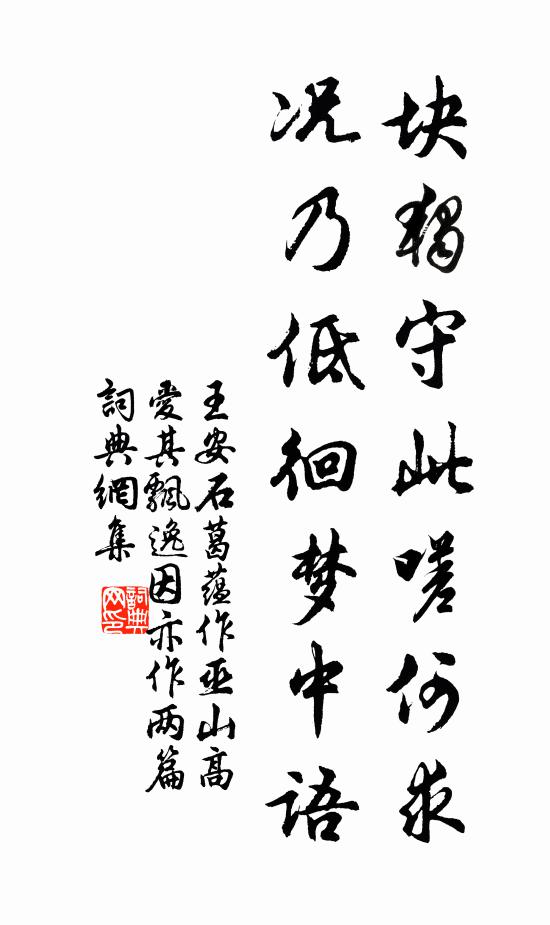 块獨守此嗟何求
况乃低徊梦中語
王安石葛蕴作巫山高
爱其飄逸因亦作两篇
詞典網集
詞典網印